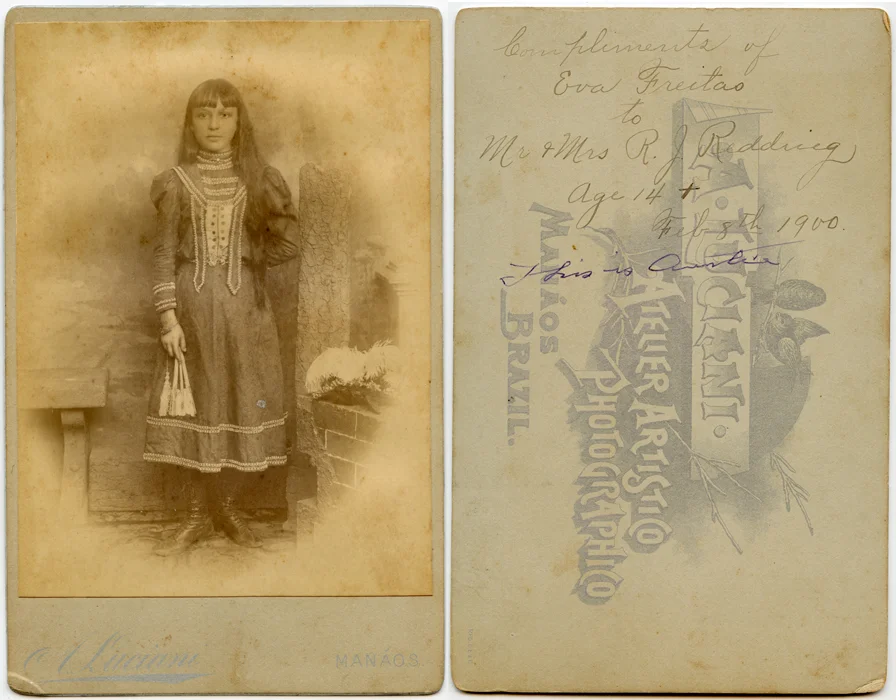 A. Luciani
MANÁOS
Compliments of
Eva Freitas
to
Mr & Mrs R. J. Redding
Age 14 +
Feb 8th 1900.
This is
A. LUCIANI.
ATELIER ARTISTICO
PHOTOGRAPHICO
MANÁOS
BRAZIL.